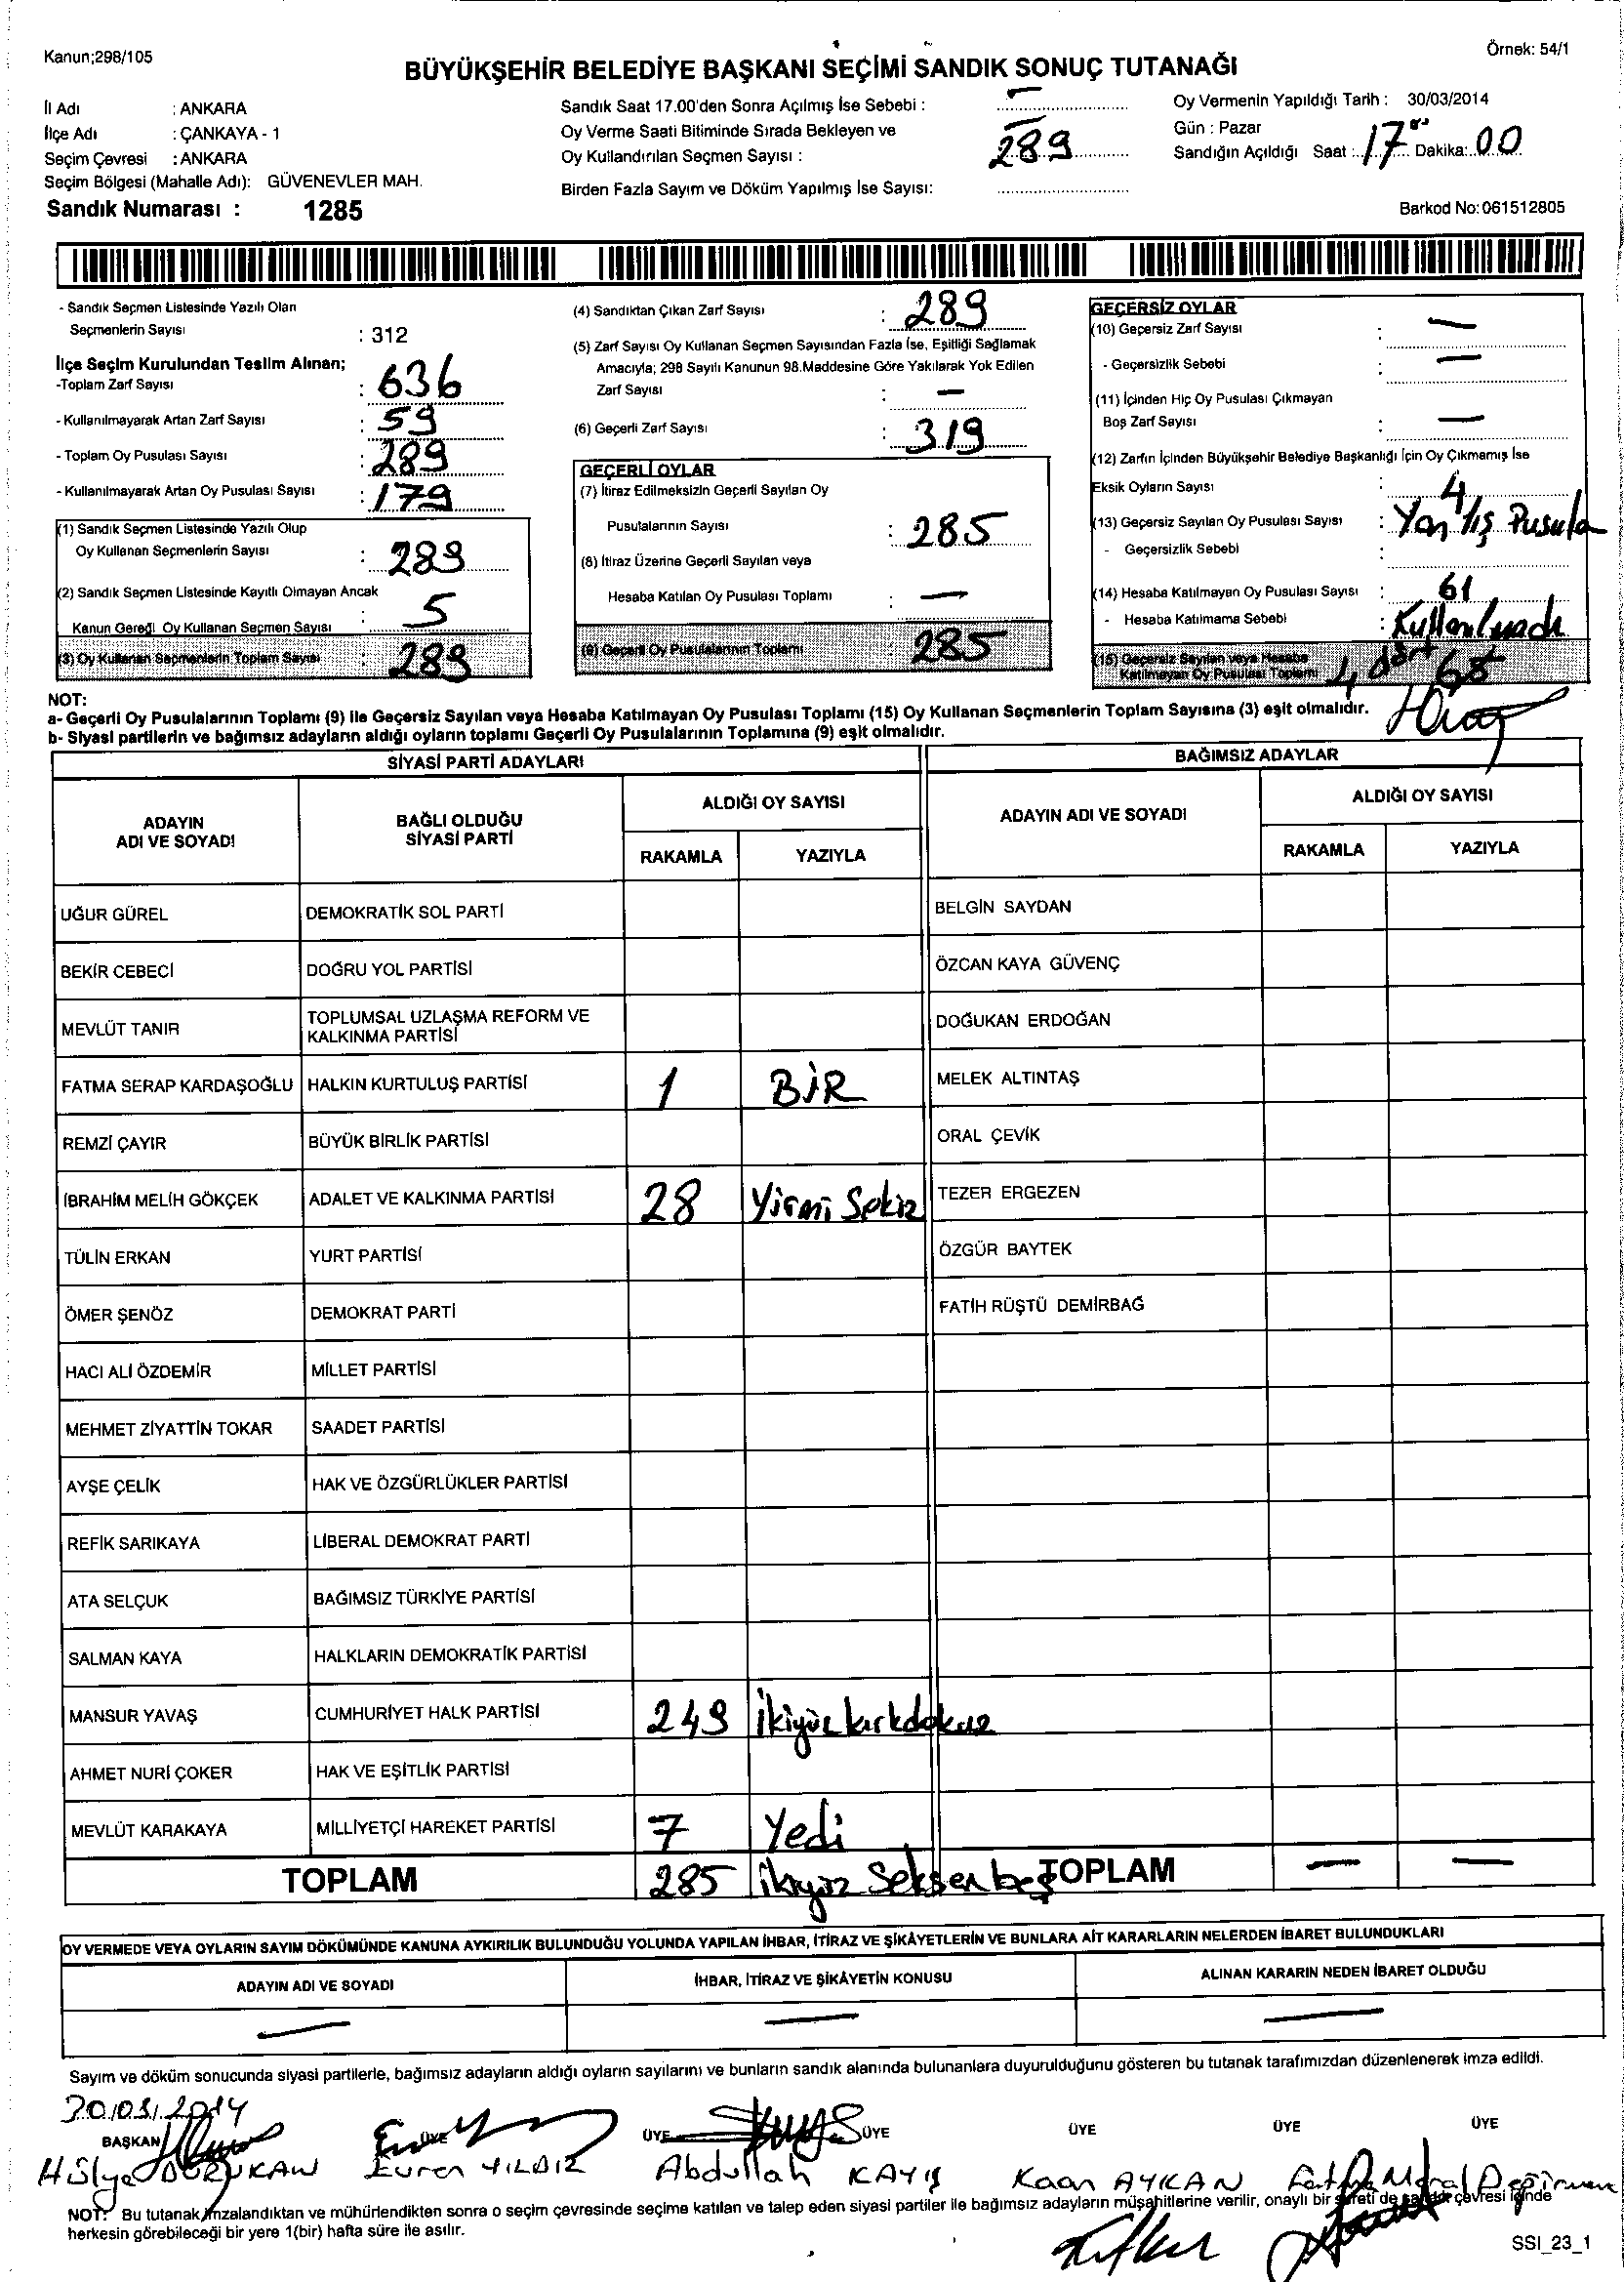 Kanun;298/105
Örnek: 54/1
BÜYÜKŞEHİR BELEDİYE BAŞKANI SEÇİMİ SANDIK SONUÇ TUTANAĞI
İl Adı : ANKARA
İlçe Adı : ÇANKAYA - 1
Seçim Çevresi : ANKARA
Seçim Bölgesi (Mahalle Adı): GÜVENEVLER MAH.
Sandık Numarası : 1285
Sandık Saat 17.00'den Sonra Açılmış İse Sebebi : —
Oy Verme Saati Bitiminde Sırada Bekleyen ve
Oy Kullandırılan Seçmen Sayısı : 289
Birden Fazla Sayım ve Döküm Yapılmış İse Sayısı:
Oy Vermenin Yapıldığı Tarih : 30/03/2014
Gün : Pazar
Sandığın Açıldığı Saat : 17 Dakika: 00
Barkod No:061512805
- Sandık Seçmen Listesinde Yazılı Olan
Seçmenlerin Sayısı : 312
İlçe Seçim Kurulundan Teslim Alınan;
-Toplam Zarf Sayısı : 636
- Kullanılmayarak Artan Zarf Sayısı : 59
- Toplam Oy Pusulası Sayısı : 289
- Kullanılmayarak Artan Oy Pusulası Sayısı : 179
(1) Sandık Seçmen Listesinde Yazılı Olup
Oy Kullanan Seçmenlerin Sayısı : 289
(2) Sandık Seçmen Listesinde Kayıtlı Olmayan Ancak
Kanun Gereği Oy Kullanan Seçmen Sayısı : 5
(3) Oy Kullanan Seçmenlerin Toplam Sayısı : 289
(4) Sandıktan Çıkan Zarf Sayısı : 289
(5) Zarf Sayısı Oy Kullanan Seçmen Sayısından Fazla İse, Eşitliği Sağlamak
Amacıyla; 298 Sayılı Kanunun 98.Maddesine Göre Yakılarak Yok Edilen
Zarf Sayısı : —
(6) Geçerli Zarf Sayısı : 319
GEÇERLİ OYLAR
(7) İtiraz Edilmeksizin Geçerli Sayılan Oy
Pusulalarının Sayısı : 285
(8) İtiraz Üzerine Geçerli Sayılan veya
Hesaba Katılan Oy Pusulası Toplamı : —
(9) Geçerli Oy Pusulalarının Toplamı 285
GEÇERSİZ OYLAR
(10) Geçersiz Zarf Sayısı : —
- Geçersizlik Sebebi : —
(11) İçinden Hiç Oy Pusulası Çıkmayan
Boş Zarf Sayısı : —
(12) Zarfın İçinden Büyükşehir Belediye Başkanlığı İçin Oy Çıkmamış İse
Eksik Oyların Sayısı : 4
(13) Geçersiz Sayılan Oy Pusulası Sayısı : Yanlış Pusula
- Geçersizlik Sebebi :
(14) Hesaba Katılmayan Oy Pusulası Sayısı : 61
- Hesaba Katılmama Sebebi : Kullanılmadı
(15) Geçersiz Sayılan veya Hesaba
Katılmayan Oy Pusulası Toplamı 4 dört 65
NOT:
a- Geçerli Oy Pusulalarının Toplamı (9) ile Geçersiz Sayılan veya Hesaba Katılmayan Oy Pusulası Toplamı (15) Oy Kullanan Seçmenlerin Toplam Sayısına (3) eşit olmalıdır.
b- Siyasi partilerin ve bağımsız adayların aldığı oyların toplamı Geçerli Oy Pusulalarının Toplamına (9) eşit olmalıdır.
SİYASİ PARTİ ADAYLARI
BAĞIMSIZ ADAYLAR
ADAYIN
ADI VE SOYADI
BAĞLI OLDUĞU
SİYASİ PARTİ
ALDIĞI OY SAYISI
RAKAMLA YAZIYLA
ADAYIN ADI VE SOYADI
ALDIĞI OY SAYISI
RAKAMLA YAZIYLA
UĞUR GÜREL DEMOKRATİK SOL PARTİ BELGİN SAYDAN
BEKİR CEBECİ DOĞRU YOL PARTİSİ ÖZCAN KAYA GÜVENÇ
MEVLÜT TANIR TOPLUMSAL UZLAŞMA REFORM VE
KALKINMA PARTİSİ DOĞUKAN ERDOĞAN
FATMA SERAP KARDAŞOĞLU HALKIN KURTULUŞ PARTİSİ 1 BİR MELEK ALTINTAŞ
REMZİ ÇAYIR BÜYÜK BİRLİK PARTİSİ ORAL ÇEVİK
İBRAHİM MELİH GÖKÇEK ADALET VE KALKINMA PARTİSİ 28 Yirmi Sekiz TEZER ERGEZEN
TÜLİN ERKAN YURT PARTİSİ ÖZGÜR BAYTEK
ÖMER ŞENÖZ DEMOKRAT PARTİ FATİH RÜŞTÜ DEMİRBAĞ
HACI ALİ ÖZDEMİR MİLLET PARTİSİ
MEHMET ZİYATTİN TOKAR SAADET PARTİSİ
AYŞE ÇELİK HAK VE ÖZGÜRLÜKLER PARTİSİ
REFİK SARIKAYA LİBERAL DEMOKRAT PARTİ
ATA SELÇUK BAĞIMSIZ TÜRKİYE PARTİSİ
SALMAN KAYA HALKLARIN DEMOKRATİK PARTİSİ
MANSUR YAVAŞ CUMHURİYET HALK PARTİSİ 249 İkiyüzkırkdokuz
AHMET NURİ ÇOKER HAK VE EŞİTLİK PARTİSİ
MEVLÜT KARAKAYA MİLLİYETÇİ HAREKET PARTİSİ 7 Yedi
TOPLAM 285 ikiyüz Seksen beş TOPLAM — —
OY VERMEDE VEYA OYLARIN SAYIM DÖKÜMÜNDE KANUNA AYKIRILIK BULUNDUĞU YOLUNDA YAPILAN İHBAR, İTİRAZ VE ŞİKÂYETLERİN VE BUNLARA AİT KARARLARIN NELERDEN İBARET BULUNDUKLARI
ADAYIN ADI VE SOYADI İHBAR, İTİRAZ VE ŞİKÂYETİN KONUSU ALINAN KARARIN NEDEN İBARET OLDUĞU
— — —
Sayım ve döküm sonucunda siyasi partilerle, bağımsız adayların aldığı oyların sayılarını ve bunların sandık alanında bulunanlara duyurulduğunu gösteren bu tutanak tarafımızdan düzenlenerek imza edildi.
30/03/2014
BAŞKAN ÜYE ÜYE ÜYE ÜYE ÜYE ÜYE
Hülya Evren YILDIZ Abdullah KAYIŞ Kaan AYKAN Fatma Meral Değirmen
NOT: Bu tutanak imzalandıktan ve mühürlendikten sonra o seçim çevresinde seçime katılan ve talep eden siyasi partiler ile bağımsız adayların müşahitlerine verilir, onaylı bir sureti de sandık çevresi içinde
herkesin görebileceği bir yere 1(bir) hafta süre ile asılır.
SSI_23_1